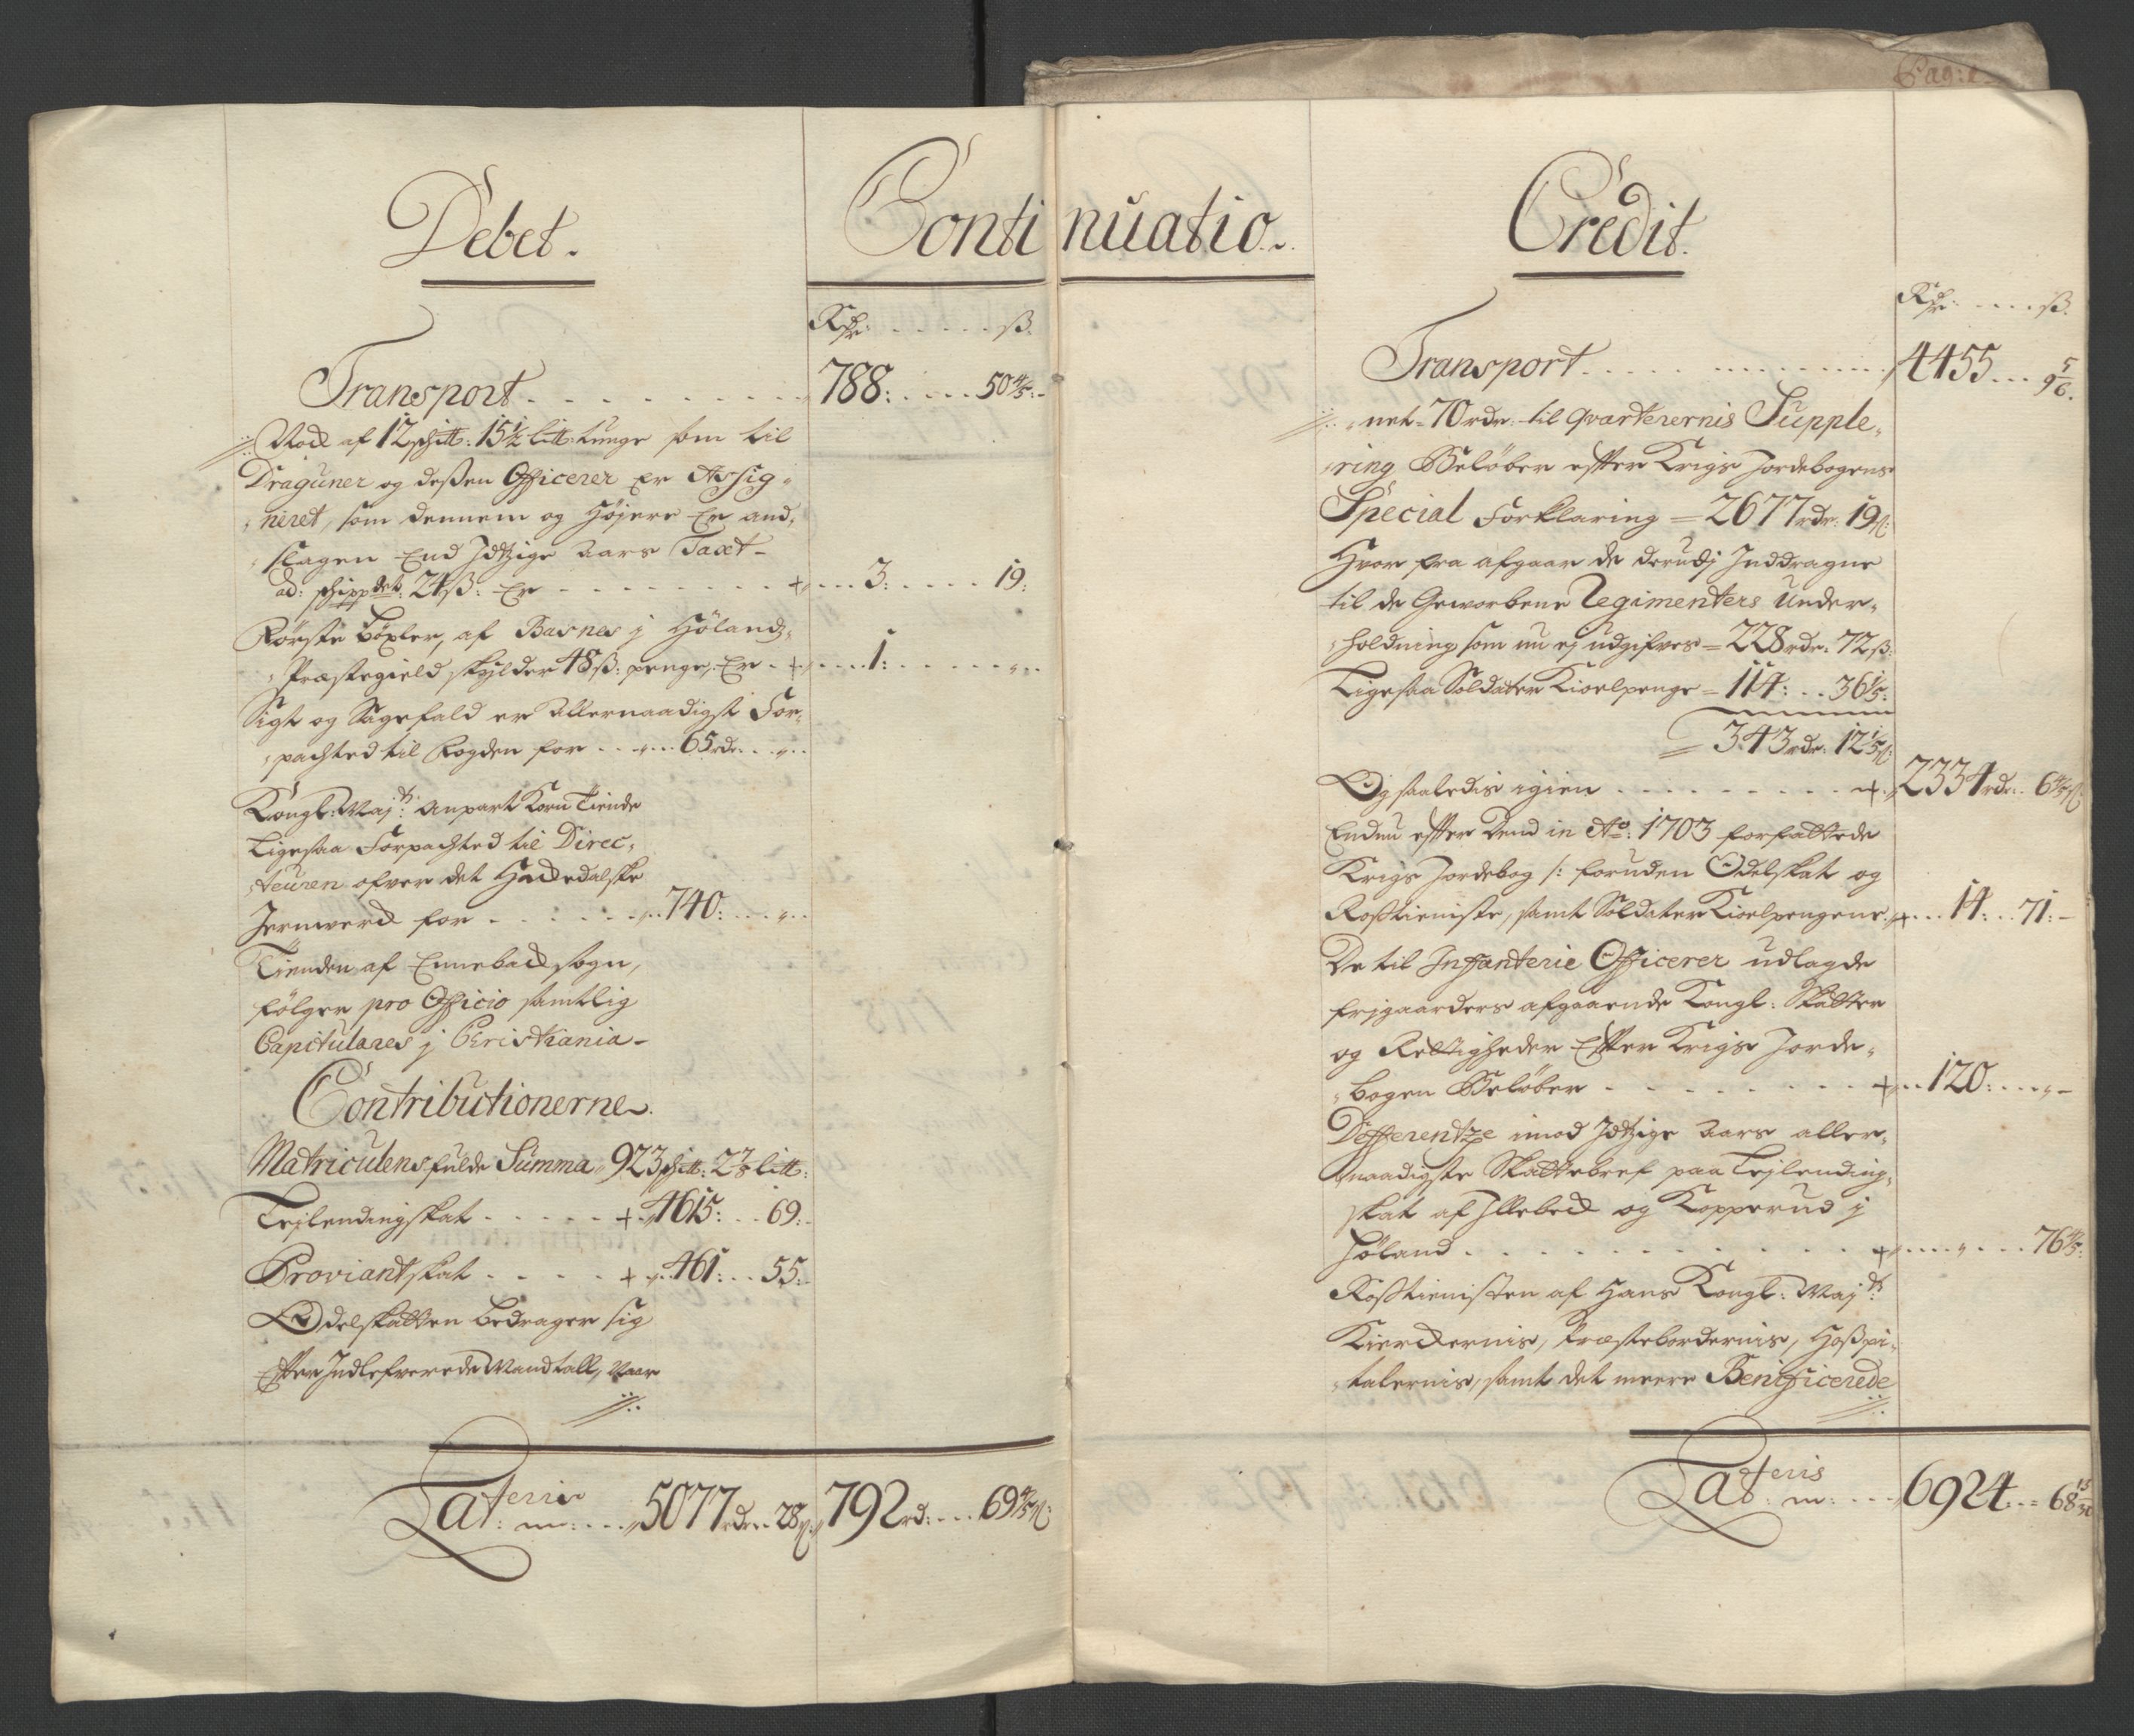 Pag: 2
Debet.
Continuatio.
Rdr: ..... ß.
Transport ......... 788: ..... 50 4/5:-
Nock af 12 schπ: 15 1/2 liπ: tunge som til
Draguner og dessen Officerer er Assig-
neret, som dennem og højere er and-
slagen end Jdtzige Aars Taxt-
ad: schippdet: 24 ß: Er ........ + ... 3: ..... 19:
Rørste bøxler, af Basnes j Hølands
Præstegield skylder 48 ß: penge, Er . + .... 1: ...... „ ..
Sigt og Sagefald er allernaadigst For-
pachted til fogden for ... „ ... 65 rdr. .. „ ..
Kongl: Maj.ts: Anpart Korn Tiende
Ligesaa Forpachted til Direc-
teuren ofver det Hackedalske
Jernwerck for ........ 740: ... „ ..
Tienden af Enneback sogn,
følger pro Officio samtlig
Capitulares j Christiania-
Contributionerne.
Matriculens fulde Summa „ 923 schπ: 2 7/8 liπ:
Lejlendingskat ..... + „ 4615: .. 69:-
Proviantskat .... + „ .. 461: .. 55:-
Odelskatten bedrager sig
Efter Indlefverede Mandtall, Naar
Lateris
Lat: m: ... „ 5077 rdr.. 28 ß: „ 792 rd: ... 69 4/5 ß:
Credit.
Rdr: .... ß.
Transport ............. 4455 ... 9 5/6.
„ net = 70 rdr: til qvarterernis Supple-
ring Beløber efter Krigs Jordebogens
Special Forklaring = 2677 rdr: 19 ß:
Hvor fra afgaar de derudj Inddragne
til de Geworbene Regimenters Under-
holdning som nu ej udgifves = 228 rdr: 72 ß:
Ligesaa Soldater Kioelpenge = 114: .. 36 1/5:
= 343 rdr: 12 1/5 ß:
Og saaledis igien ......... + „ 2334 rdr.. 6 4/5 ß:
Endnu efter dend in Ao: 1703 forfattede
Krigs Jordebog /: foruden Odelskat og
Rosstieniste, samt Soldater Kioelpengene. + ... 14: .. 71:-
De til Infanterie Officerer udlagde
frigaarders afgaaende Kongl: Skatter
og Rettigheder Efter Krigs Jorde-
bogen Beløber ........ + ... 120: ... „ -
Differentze imod Jdtzige Aars aller-
naadigste Skattebref paa Lejlending-
skat af Illebeck og Kopperud j
Høland ............ + .... „ ... 76 4/5:
Rosstienisten af Hans Kongl: Maj.ts:
Kierckernis, Præstebordernis, Hosspi-
talernis, samt det meere Benificerede
Lateris
Lat: m: ... 6924 .. = 68 13/30